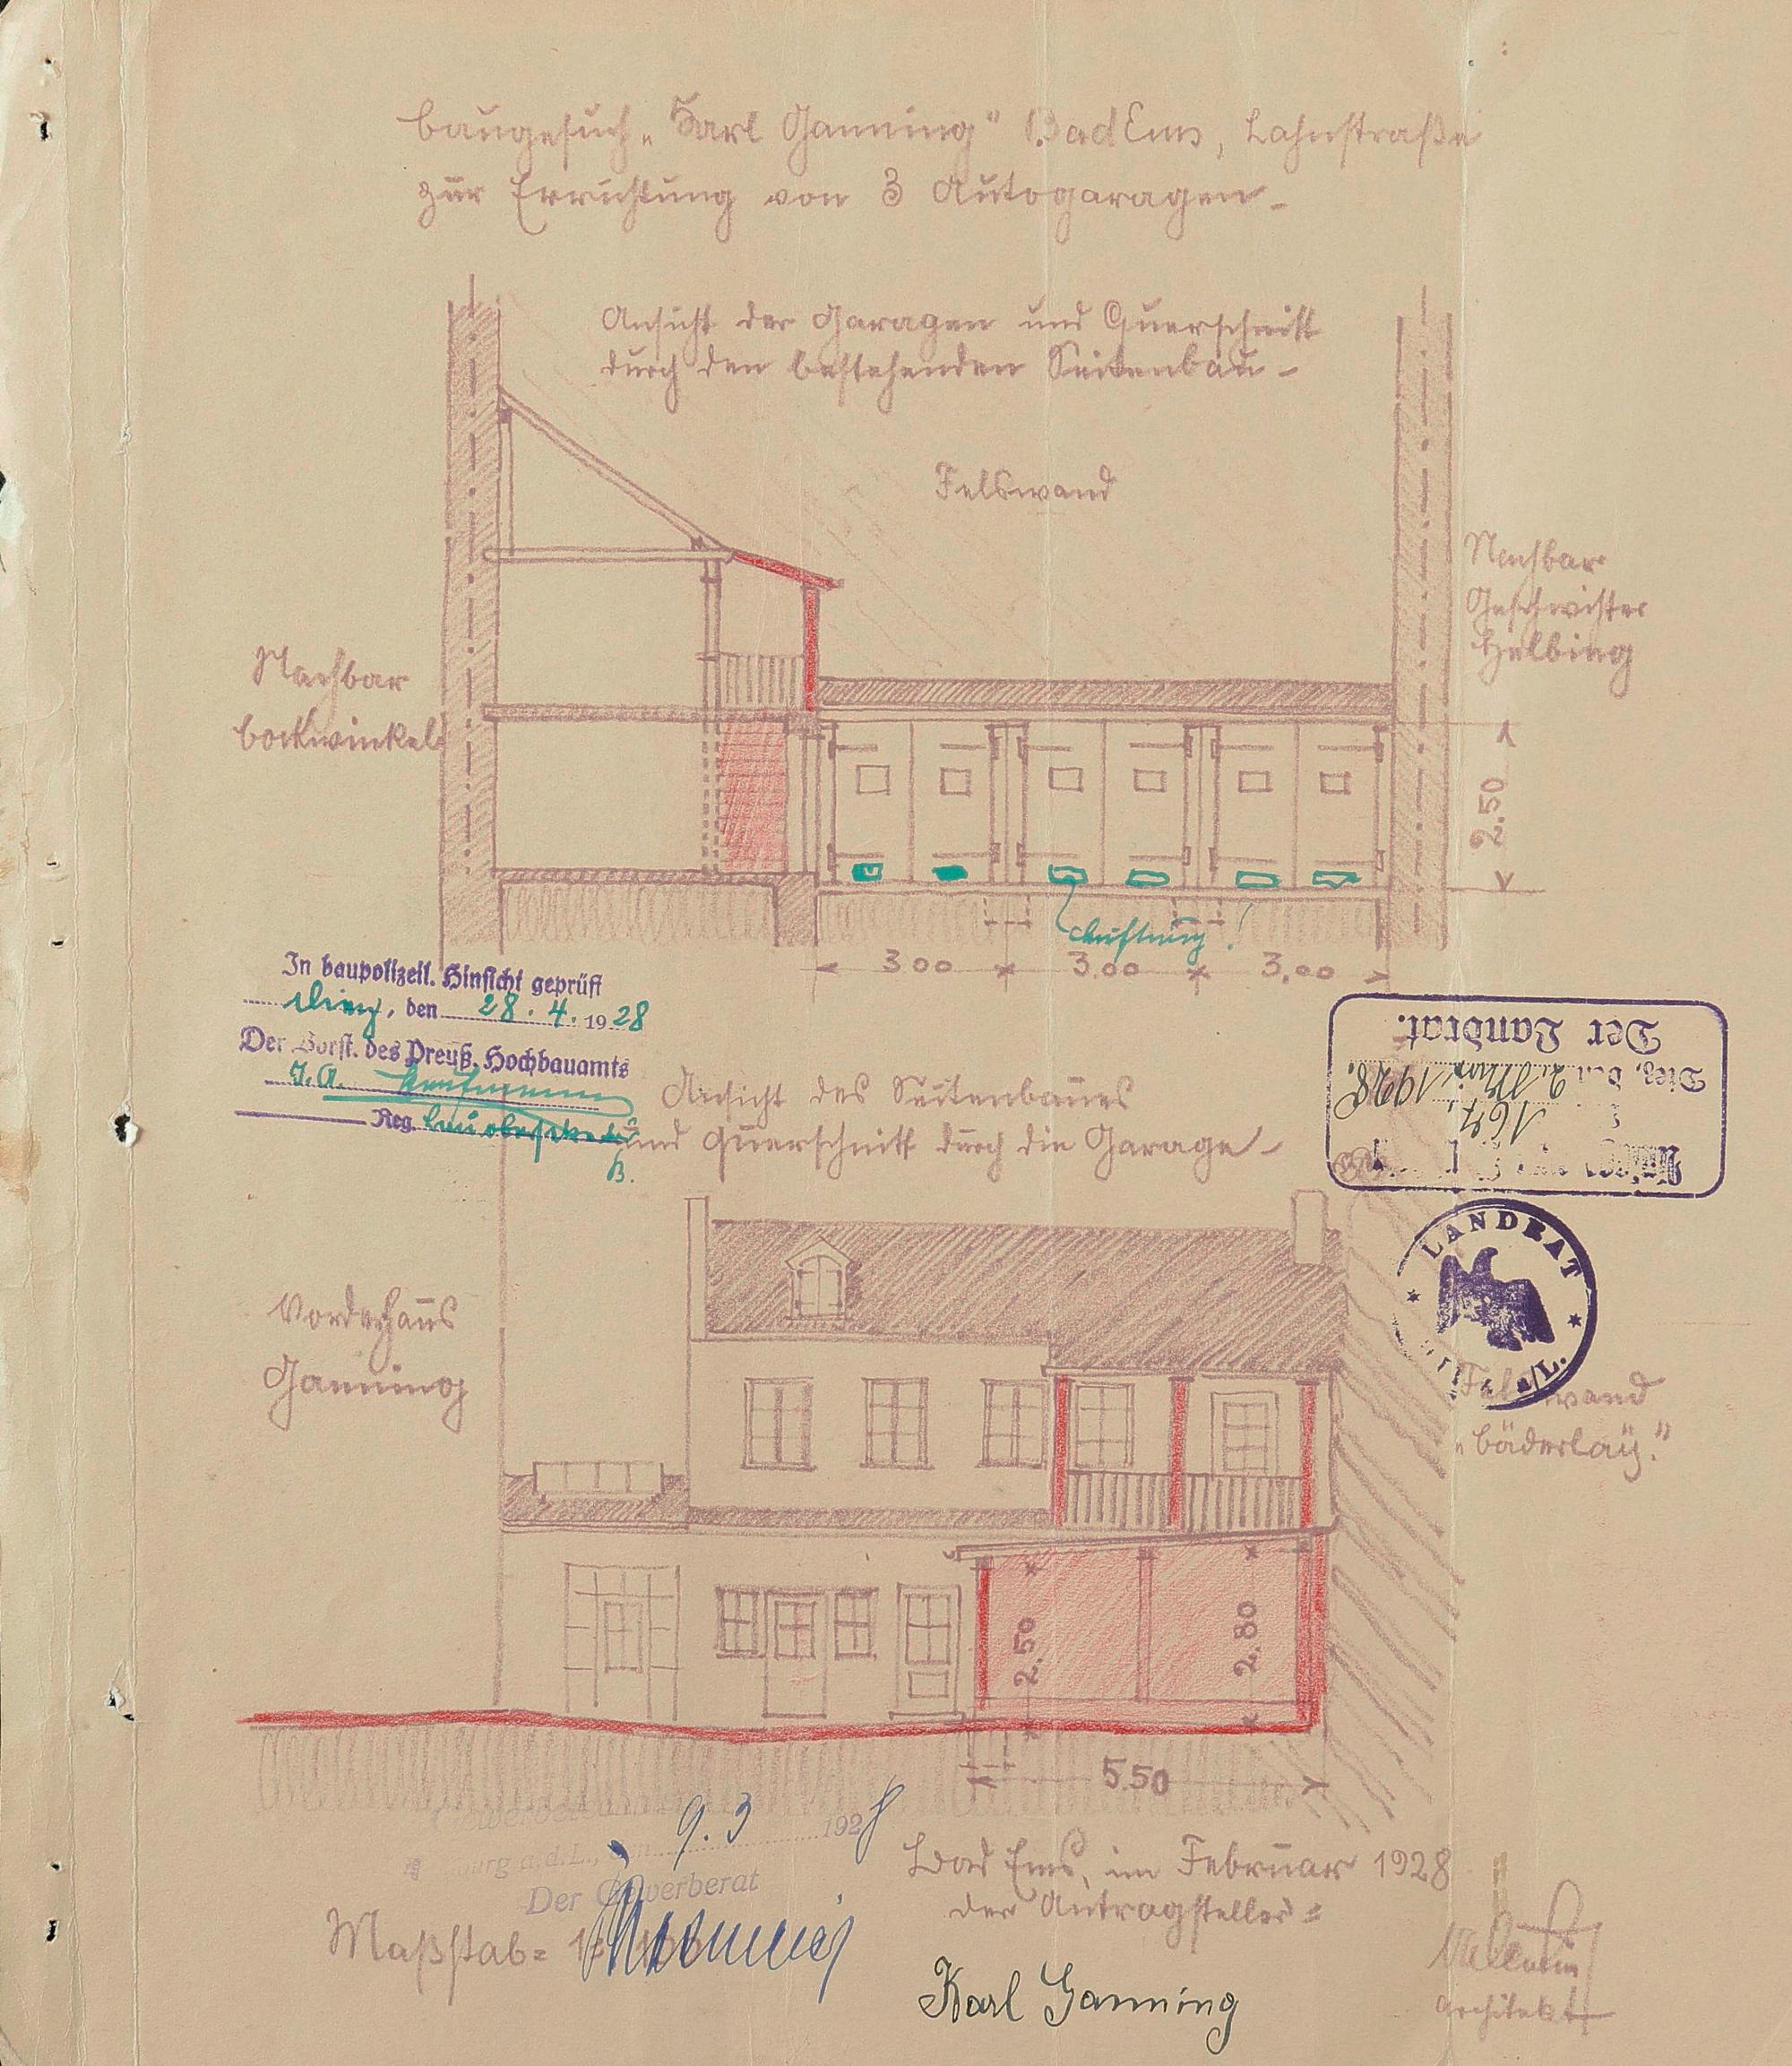 Baugesuch „Karl Ganning" Bad Ems, Lahnstraße
zur Errichtung von 3 Autogaragen-
Ansicht der Garagen und Querschnitt
durch den bestehenden Seitenbau-
Felswand
Nachbar
Geschwister
Helbing
Nachbar
Bockwinkel
2.50
Lüftung!
3 00 3.00 3,00
In baupolizeil. Hinsicht geprüft
Diez, den 28. 4. 1928
Der Vorst. des Preuß. Hochbauamts
I.A.
Reg.
Der Landrat.
Diez, den 2. Mai 1928.
Ansicht des Seitenbaues
und Querschnitt durch die Garage-
LANDRAT
a/L.
Vorderhaus
Ganning
Felswand
„Bäderlay."
2.50
2.80
5.50
9.3 1928
Der Gewerberat
Bad Ems, im Februar 1928
der Antragsteller=
Maßstab= 1:100
Karl Ganning
Valentin
Architekt